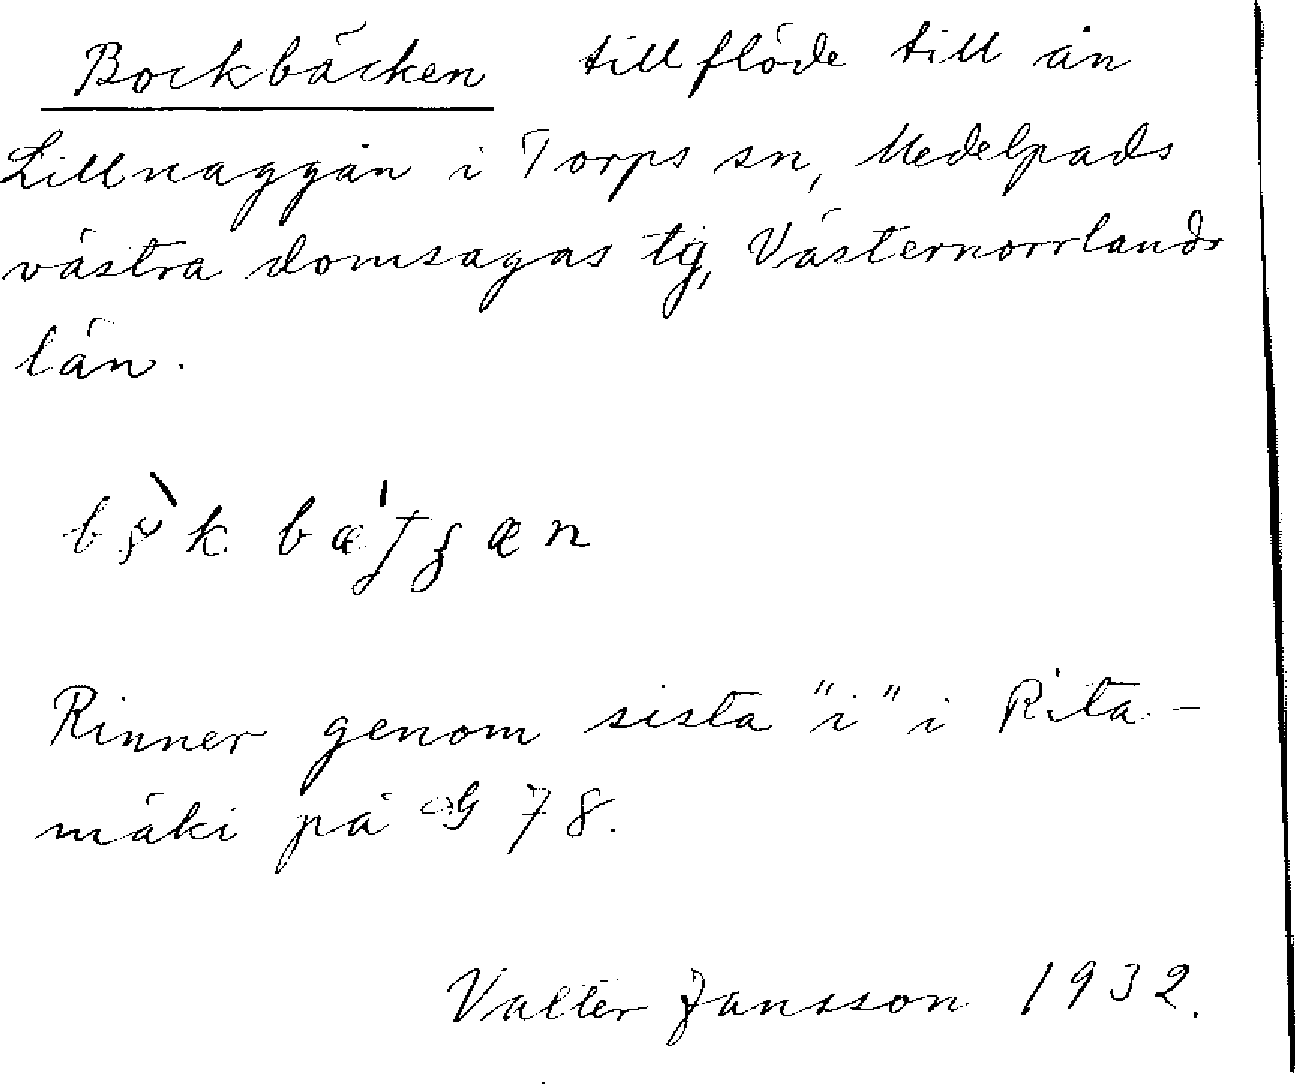 Bockbäcken tillflöde till ån
Lillnaggån i Torps sn, Medelpads
västra domsagas tg, Västernorrlands
län.
Rinner genom sista "i" i Rita-
mäki på G 78.
Valter Jansson 1932.